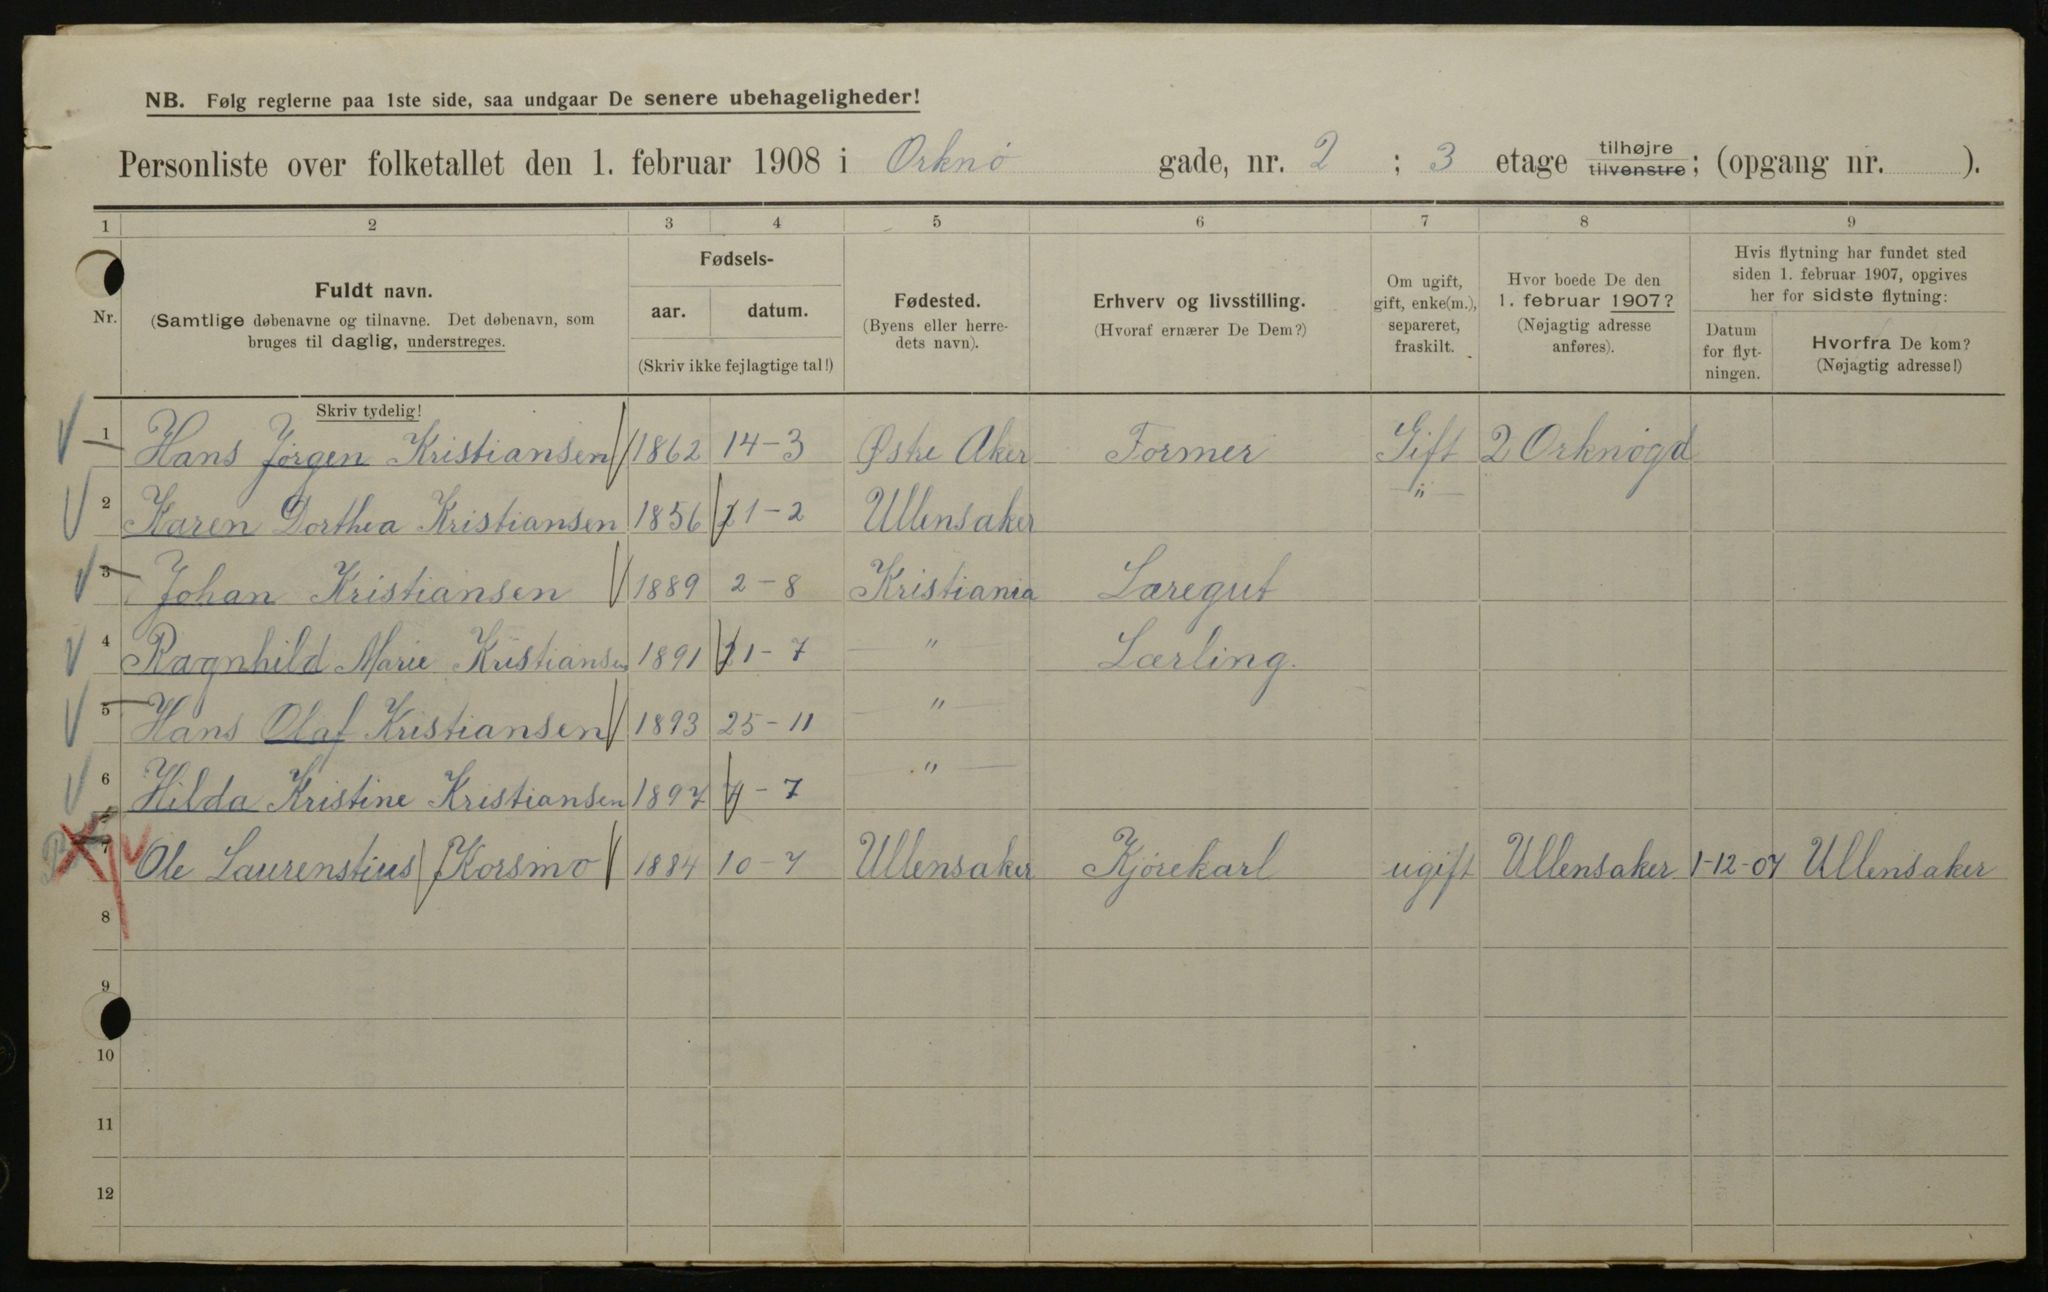 NB. Følg reglerne paa 1ste side, saa undgaar De senere ubehageligheder!
Personliste over folketallet den 1. februar 1908 i Orknø gade, nr. 2 ; 3 etage tilhøjre tilvenstre; (opgang nr. ).
1 2 3 4 5 6 7 8 9
Nr.
Fuldt navn.
(Samtlige døbenavne og tilnavne. Det døbenavn, som
bruges til daglig, understreges.
Skriv tydelig!
Fødsels-
aar. datum.
(Skriv ikke fejlagtige tal!)
Fødested.
(Byens eller herre-
dets navn).
Erhverv og livsstilling.
(Hvoraf ernærer De Dem?)
Om ugift,
gift, enke(m.),
separeret,
fraskilt.
Hvor boede De den
1. februar 1907?
(Nøjagtig adresse
anføres).
Hvis flytning har fundet sted
siden 1. februar 1907, opgives
her for sidste flytning:
Datum
for flyt-
ningen.
Hvorfra De kom?
(Nøjagtig adresse!)
1 Hans Jørgen Kristiansen 1862 14-3 Østre Aker Former Gift 2 Orknøgd
2 Karen Dorthea Kristiansen 1856 21-2 Ullensaker "
3 Johan Kristiansen 1889 2-8 Kristiania Læregut
4 Ragnhild Marie Kristiansen 1891 21-7 " Lærling.
5 Hans Olaf Kristiansen 1893 25-11 "
6 Hilda Kristine Kristiansen 1897 4-7 "
7 Ole Laurenstius Korsmo 1884 10-7 Ullensaker Kjørekarl ugift Ullensaker 1-12-07 Ullensaker
8
9
10
11
12